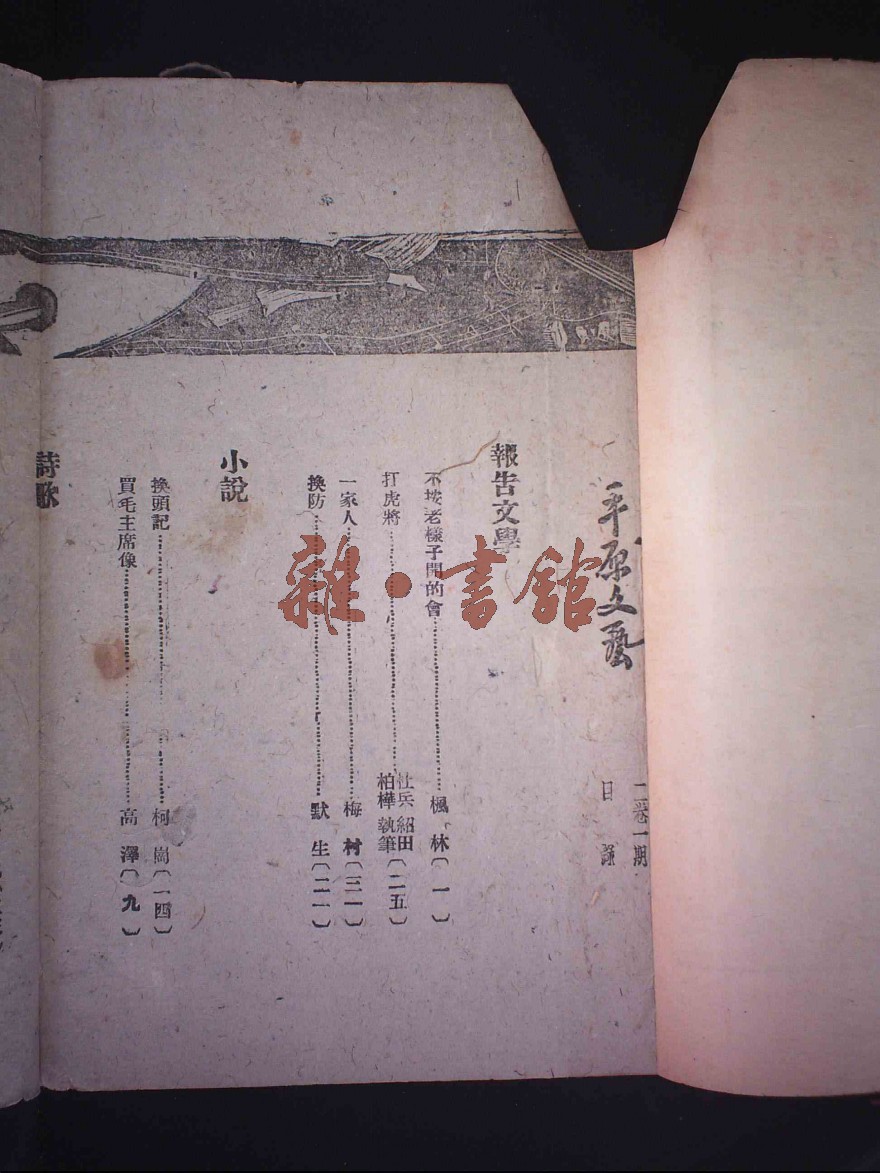 平原文藝
二卷一期
目錄
報告文學
不按老樣子開的會⋯⋯楓林〔一〕
打虎將⋯⋯杜兵 紹田 柏樺 執筆〔二五〕
一家人⋯⋯梅村〔三一〕
換防⋯⋯默生〔二一〕
小說
換頭記⋯⋯柯崗〔一四〕
買毛主席像⋯⋯高澤〔九〕
詩歌
雜·書館